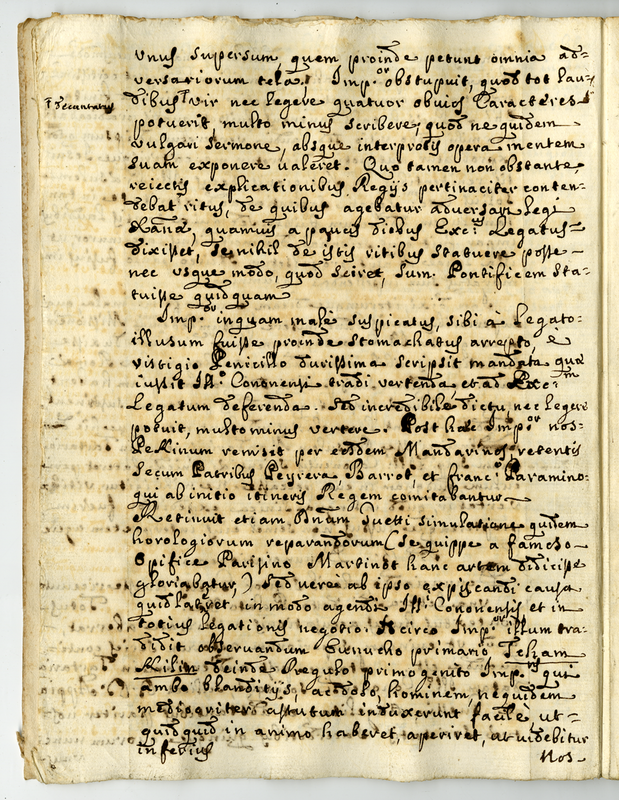 vnus supersum, quem proinde petunt omnia ad=
versariorum tela! Imp.or obstupuit, quod tot lau=
† decantatus
dibus † vir nec legere quatuor obuios Caracteres
potuerit, multo minus scribere, quod ne quidem
vulgari sermone, absque interpretis opera mentem
suam exponere valeret. Quo tamen non obstante,
reiectis explicationibus Regijs pertinaciter conten=
debat ritus, de quibus agebatur adversari legi
Xanae, quamuis a paucis diebus Exc. Legatus
dixisset, se nihil de istis ritibus statuere posse
nec usque modo, quod sciret, Sum. Pontificem sta=
tuisse quidquam
Imp.or inquam male suspicatus, sibi à Legato
illusum fuisse proinde stomachatus arrepto, è
vistigio Penicillo durissima scripsit mandata quae
iussit Ill. Cononensi tradi vertenda et ad Exc.m
Legatum deferenda. Sed incredibile dictu, nec legere
potuit, multo minus vertere. Post haec Imp.or nos
Pekinum remisit per eosdem Mandarinos retentis
secum Patribus Peyrera, Barros, et Franc. Paramino
qui ab initio itineris Regem comitabantur
Retinuit etiam Dnum Guetti simulatione quidem
horologiorum reparandorum (se quippe a famoso
Opifice Parisino Martinot hanc artem didicisse
gloriabatur,) sed verè ab ipso expiscandi causa
quid lateret in modo agendi Ill. Cononensis et in
totius legationis negotio. Idcirco Imp.or istum tra=
didit observandum Eunucho primario
deinde Regulo primogenito Imp.ris qui
ambo blanditijs, ac dolo, hominem, ne quidem
mediocriter astutum induxerunt facilè ut
quidquid in animo haberet, aperiret, ut videbitur
inferius
Nos